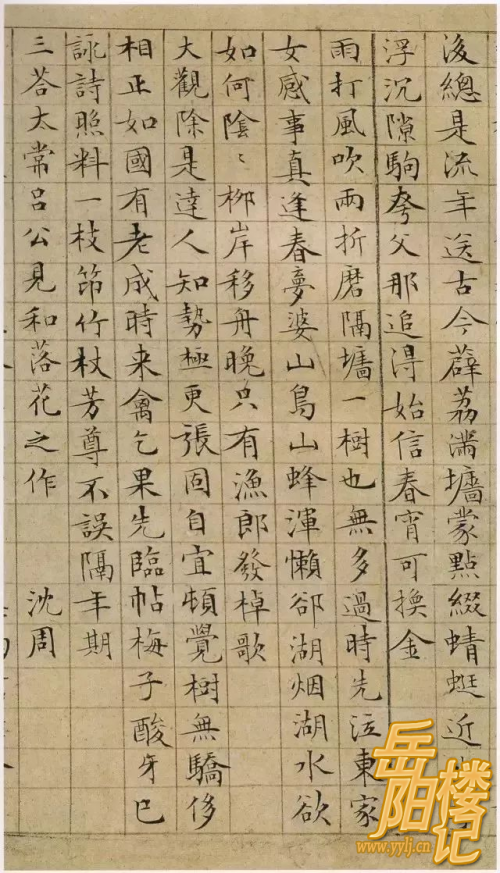 後總是流年送古今薜荔滿墻蒙點綴蜻蜓近
浮沉隙駒夸父那追得始信春宵可換金
雨打風吹兩折磨隔墻一樹也無多過時先泣東家
女感事真逢春夢婆山鳥山蜂渾懶卻湖烟湖水欲
如何陰〻柳岸移舟晚只有漁郎發棹歌
大觀除是達人知勢極更張固自宜頓覺樹無驕侈
相正如國有老成時来禽乞果先臨帖梅子酸牙已
詠詩照料一枝筇竹杖芳尊不誤隔年期
三荅太常吕公見和落花之作 沈周
岳阳楼记
www.yylj.cn